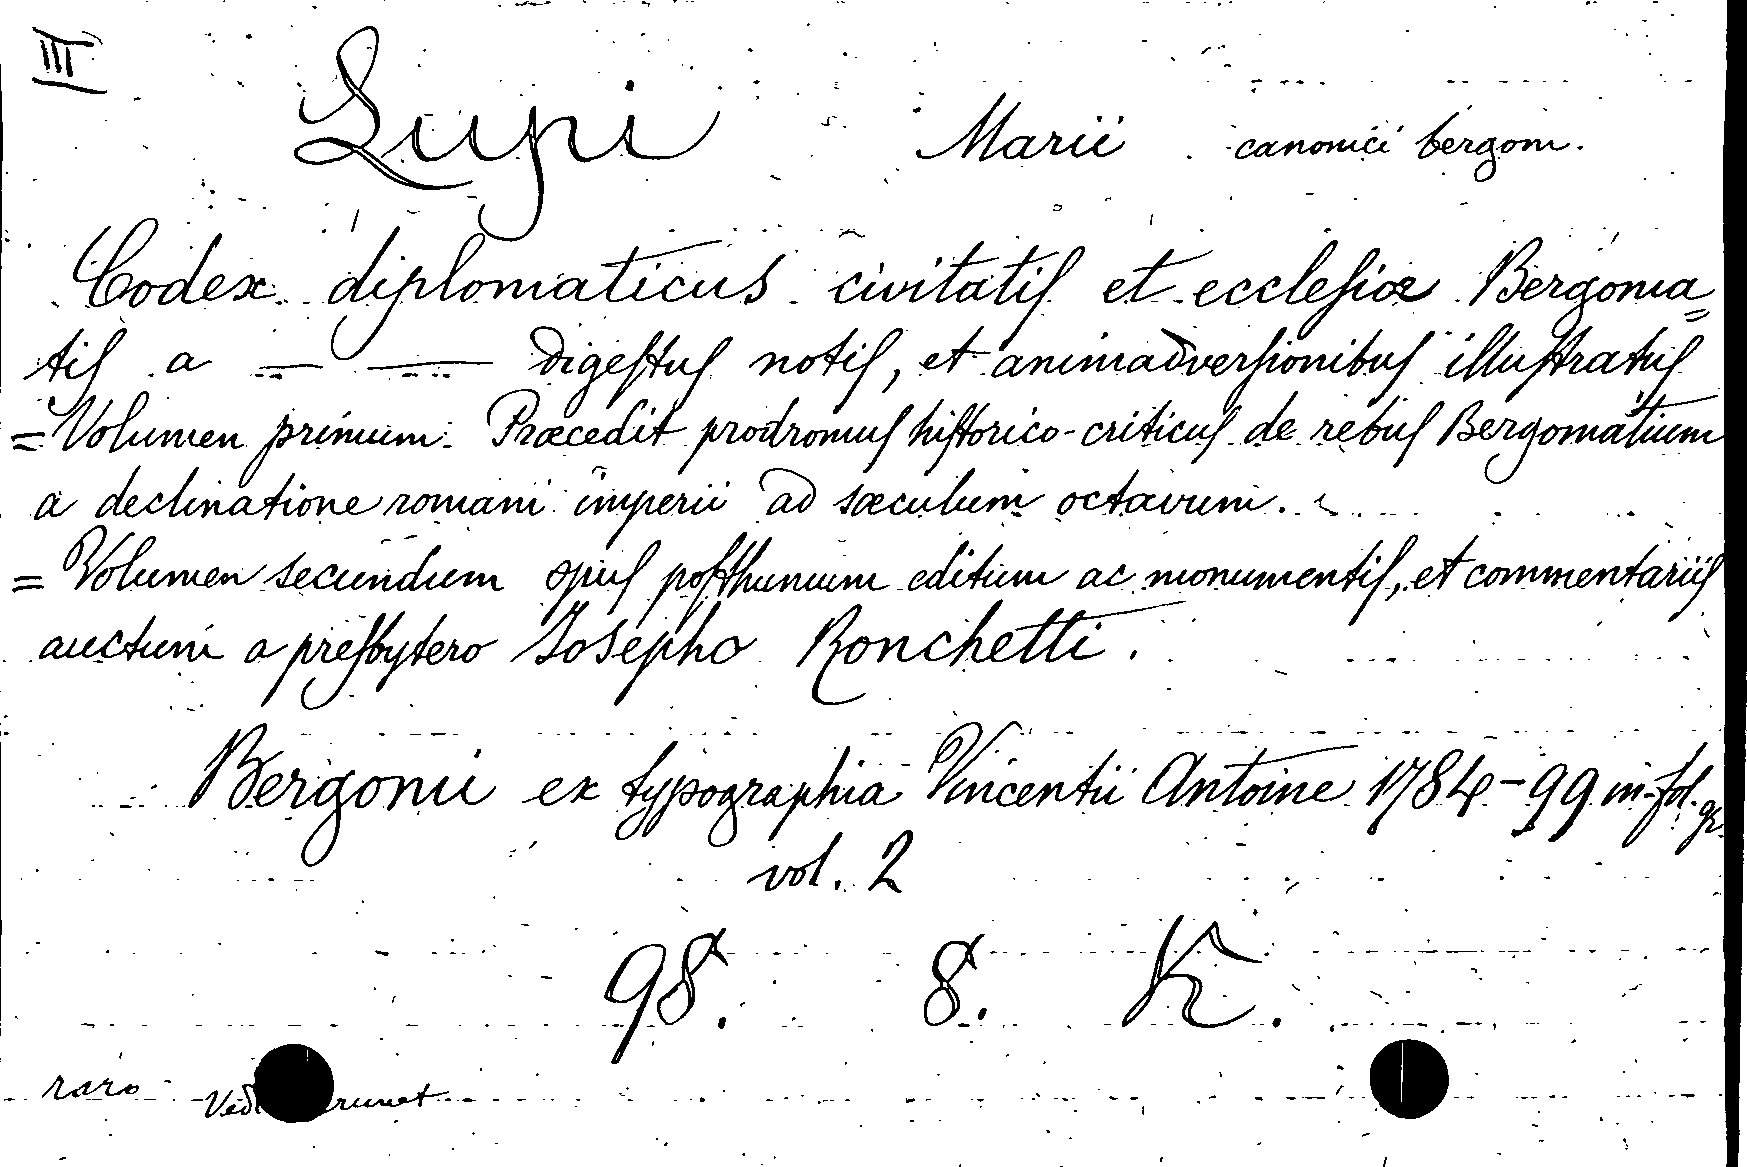 III
Lupi Marii canonici bergom.
Codex diplomaticus civitatiſ et eccleſiæ Bergoma=
tiſ a — — digeſtuſ notiſ, et animadverſionibuſ illuſtratuſ
= Volumen primum. Præcedit prodromuſ hiſtorico-criticuſ de rebuſ Bergomatium
a declinatione romani imperii ad sæculum octavum.
= Volumen secundum opuſ poſthumum editum ac monumentiſ, et commentariiſ
auctum a preſbytero Josepho Ronchetti.
Bergomi ex typographia Vincentii Antoine 1784-99 in-fol. gr.
vol. 2
98. 8. K.
raro